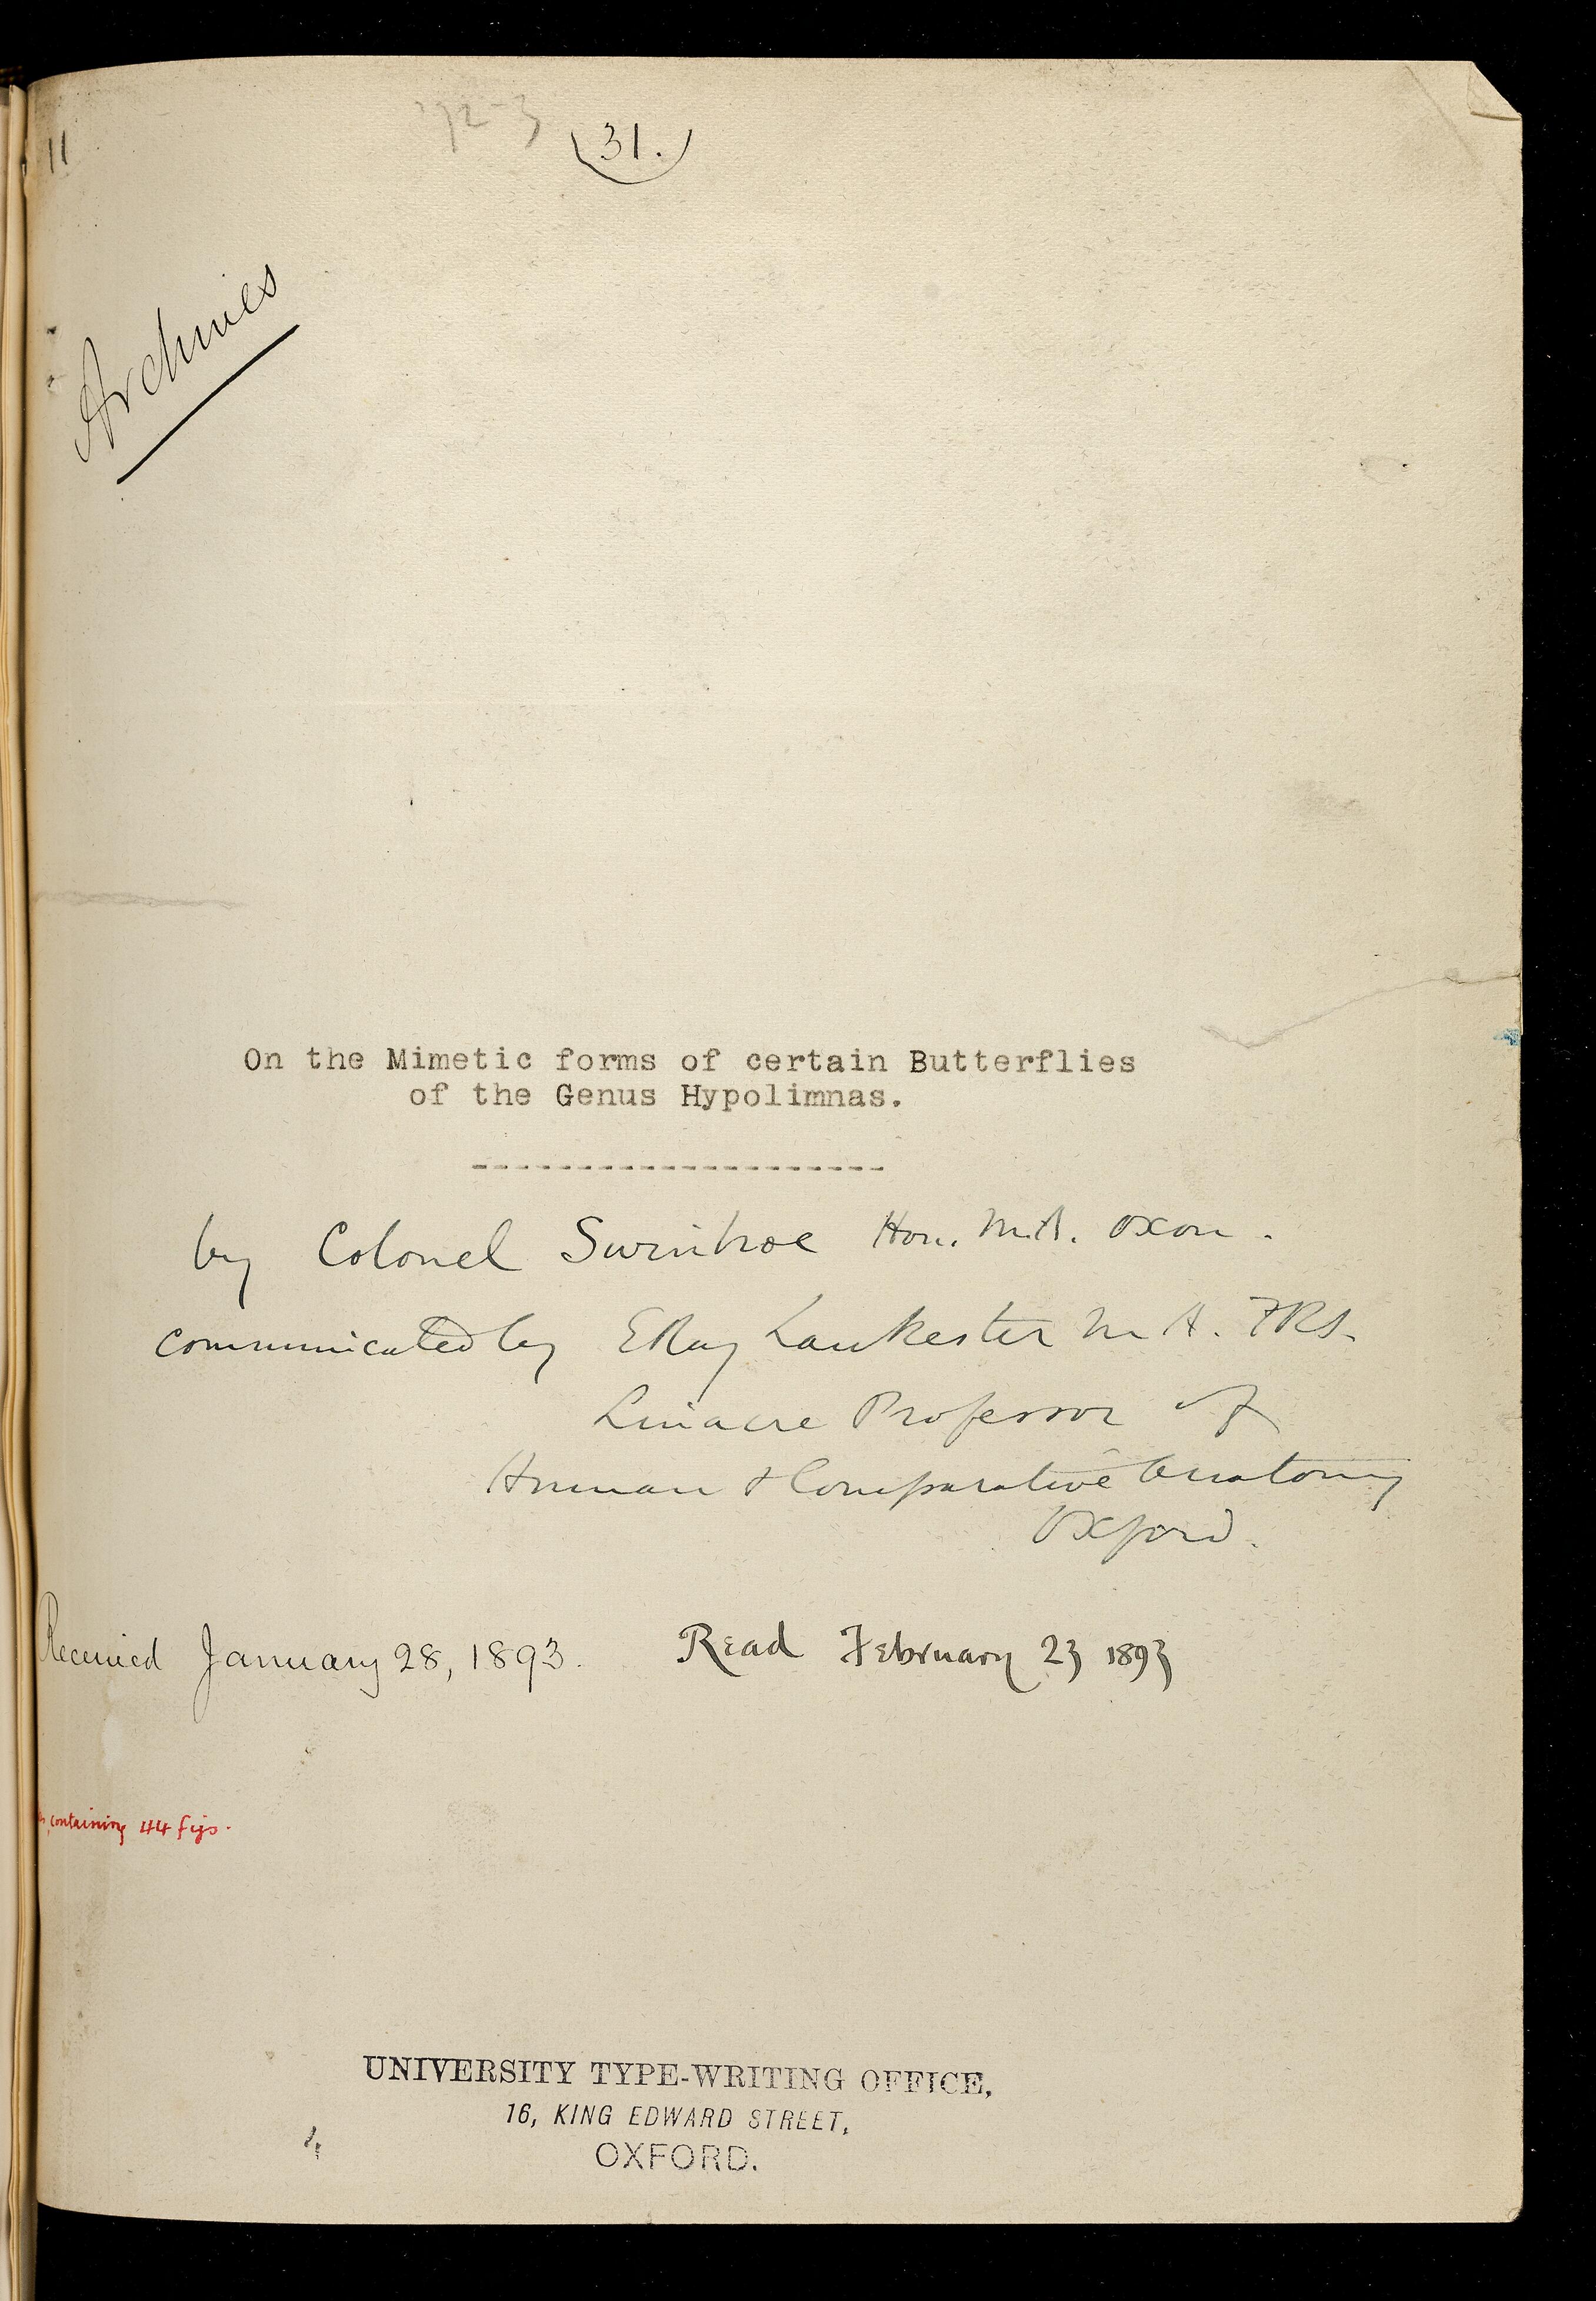 '92-3
(31.)
11
Archives
On the Mimetic forms of certain Butterflies
of the Genus Hypolimnas.
--------------------
by Colonel Swinhoe Hon. M.A. Oxon.
communicated by E Ray Lankester M.A. FRS.
Linacre Professor of
Human & Comparative Anatomy
Oxford.
Received January 28, 1893. Read February 23 1893
containing 44 figs.
UNIVERSITY TYPE-WRITING OFFICE,
16, KING EDWARD STREET,
OXFORD.